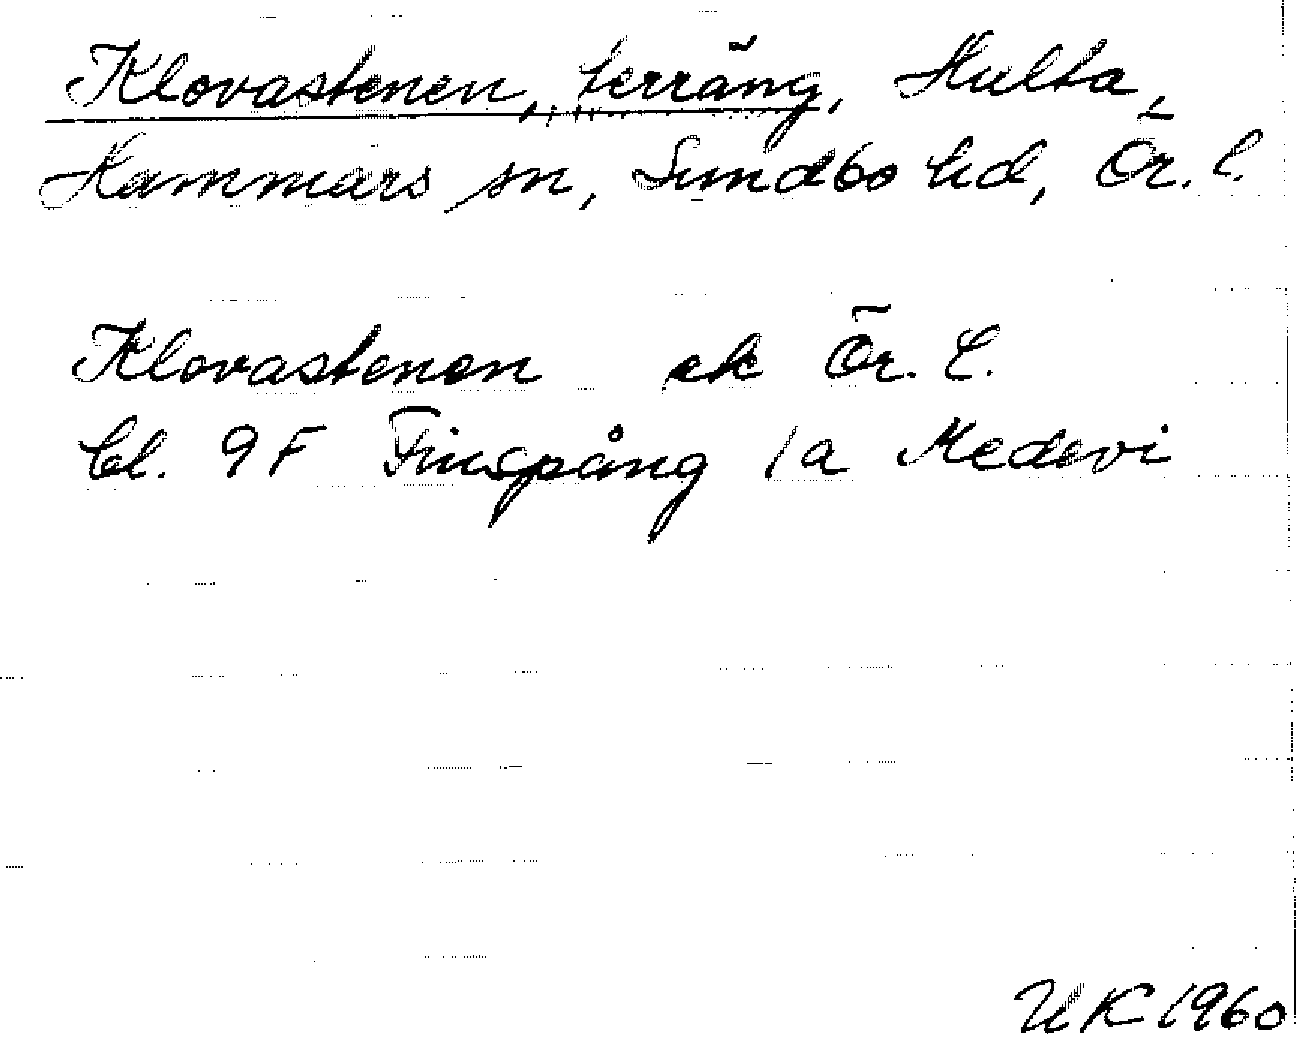 Klovastenen, terräng, Hulta,
Hammars sn, Sundbo hd, Ör. l.
Klovastenen ek Ör. L.
bl. 9F Finspång 1a Medevi
UK 1960